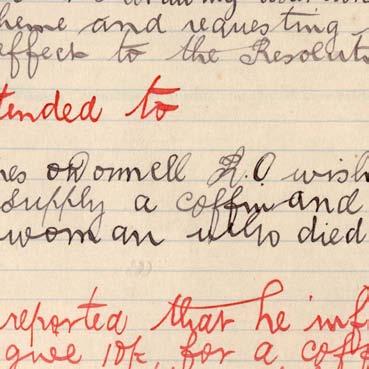 heme and requesting
effect to the Resolut
tended to
nes O'Donnell R.O wish
supply a coffin and
woman who died
reported that he inf
give 10/- for a coff